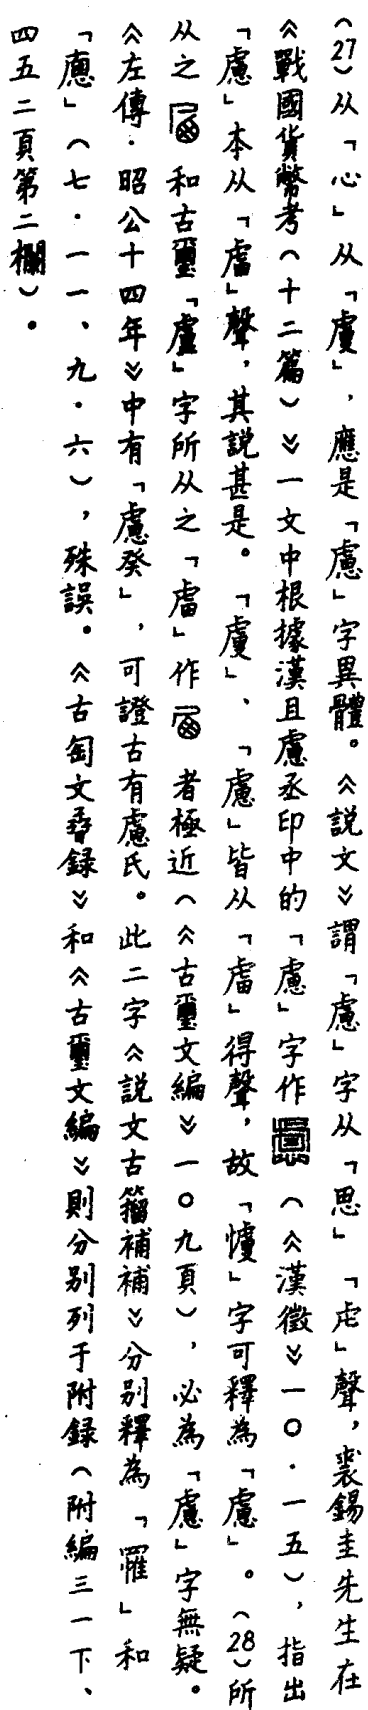 （27）从「心」从「」，應是「慮」字異體。《説文》謂「慮」字从「思」「虍」聲，裘錫圭先生在
《戰國貨幣考（十二篇）》一文中根據漢且慮丞印中的「慮」字作（《漢徵》一〇·一五），指出
「慮」本从「」聲，其説甚是。「」、「慮」皆从「」得聲，故「」字可釋為「慮」。（28）所
从之和古璽「盧」字所从之「」作者極近（《古璽文編》一〇九頁），必為「慮」字無疑。
《左傳·昭公十四年》中有「慮癸」，可證古有慮氏。此二字《説文古籀補補》分別釋為「罹」和
「」（七·一一、九·六），殊誤。《古匋文孴録》和《古璽文編》則分別列于附録（附編三一下、
四五二頁第二欄）。